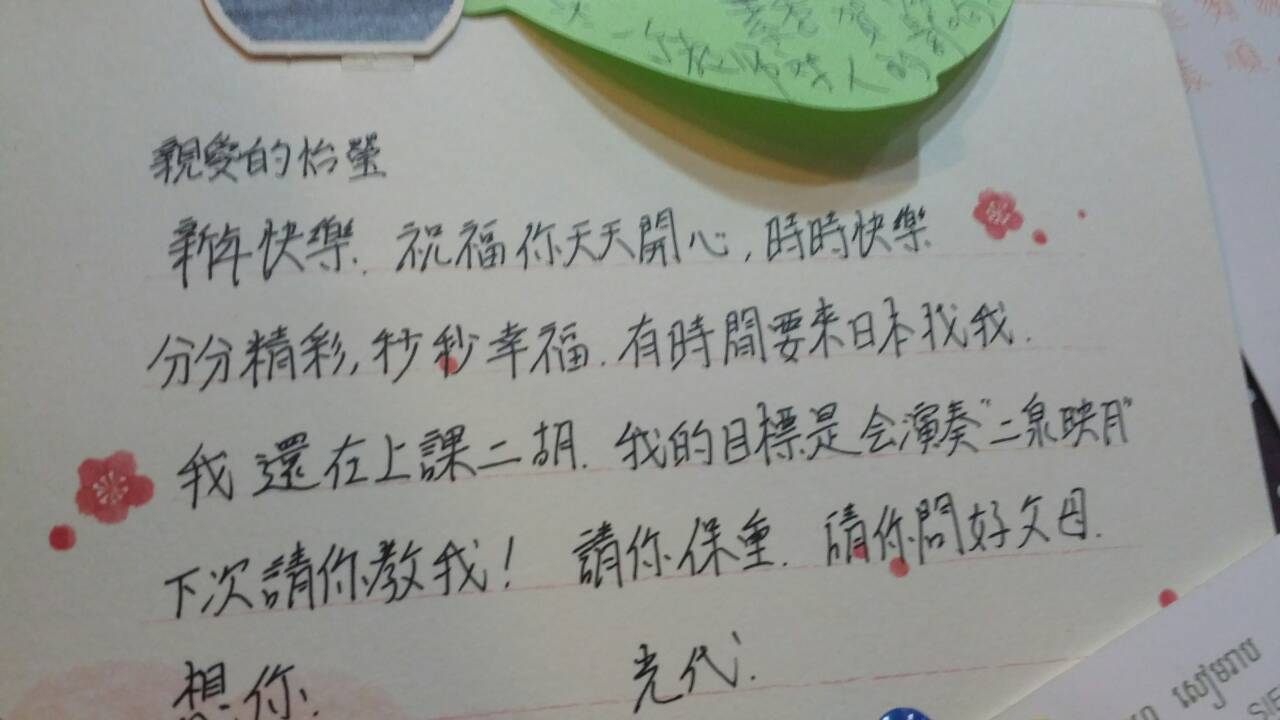 親愛的怡瑩
新年快樂. 祝福你天天開心,時時快樂
分分精彩,秒秒幸福. 有時間要來日本找我.
我還在上課二胡. 我的目標是会演奏"二泉映月"
下次請你教我! 請你保重. 請你問好父母.
想你. 光代.